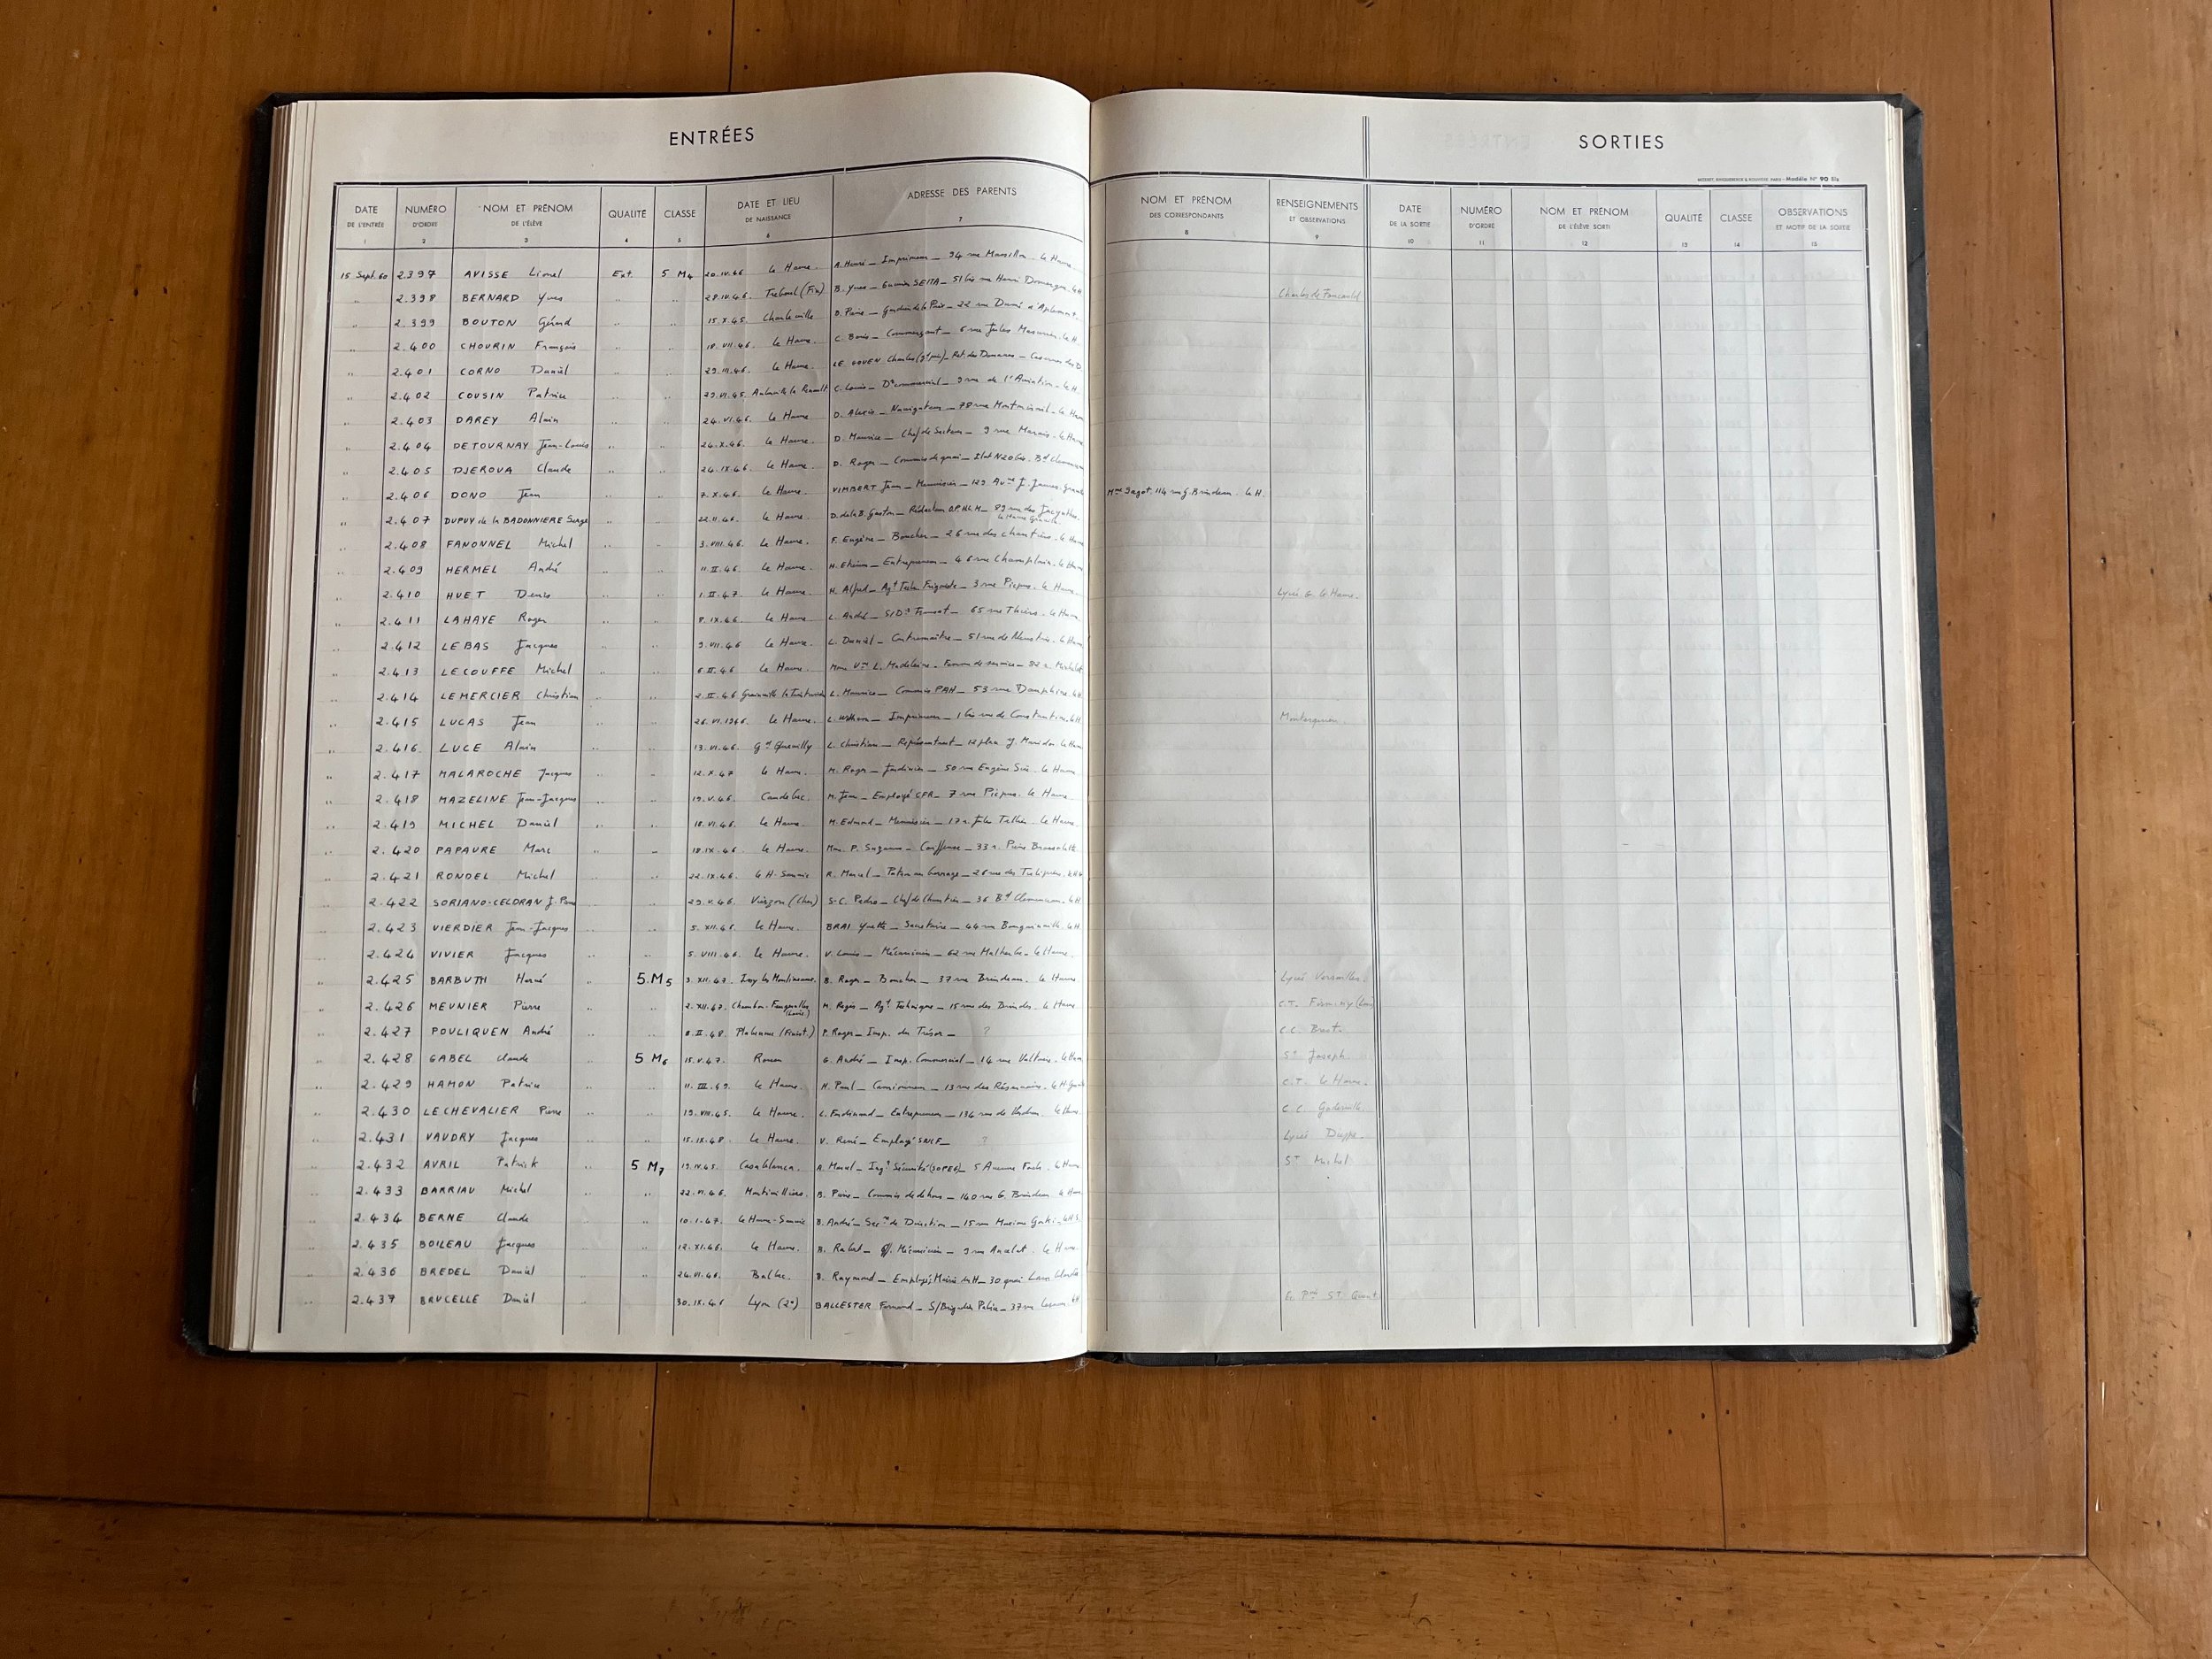 ENTRÉES
DATE DE L'ENTRÉE 1 NUMÉRO D'ORDRE 2 NOM ET PRÉNOM DE L'ÉLÈVE 3 QUALITÉ 4 CLASSE 5 DATE ET LIEU DE NAISSANCE 6 ADRESSE DES PARENTS 7
15 Sept. 60 2397 AVISSE Lionel Ext. 5 M4 20.IV.46 Le Havre. A. Henri _ Imprimeur _ 94 rue Massillon. Le Havre
" 2.398 BERNARD Yves " 28.IV.46. Tréboul (Fin) B. Yves _ SEITA _ 51 bis rue Henri
" 2.399 BOUTON Gérard " " 15.X.45 Charleville B. _ Gardien de la Paix _ 22 rue Dumé d'Aplemont
" 2.400 CHOURIN François " " 18.VII.46 Le Havre. C. _ Commerçant _ 6 rue Jules Masurier. Le H.
" 2.401 CORNO Daniel " " 29.III.46. Le Havre. LE GOUEN Charles _ Ret. des Douanes _
" 2.402 COUSIN Patrice " " 29.VI.45. C. Louis _ Dr commercial _ 9 rue de l'Aviation. Le H.
" 2.403 DAREY Alain " " 24.VI.46. Le Havre D. Alexis _ Navigateur _ 78 rue Montmirail. Le Havre
" 2.404 DETOURNAY Jean-Louis " " 24.X.46. Le Havre. D. Maurice _ Chef de Secteur _ 9 rue Marais. Le Havre
" 2.405 DJEROVA Claude " " 24.IX.46 Le Havre. D. Roger _ Commis de quai _
" 2.406 DONO Jean " " 7.X.46. Le Havre. VIMBERT Jean _ Menuisier _ 129 Avue J. Jaurès.
" 2.407 DUPUY de la BADONNIERE Serge " " 22.II.46. Le Havre. D. de la B. Gaston _ Rédacteur O.P.H.L.M _ 89 rue des Jacquettes.
" 2.408 FANONNEL Michel " " 3.VIII.46. Le Havre. F. Eugène _ Boucher _ 26 rue des chantiers. Le Havre
" 2.409 HERMEL André " " 11.II.46. Le Havre. H. Etienne _ Entrepreneur _ 46 rue Champlain. Le Havre
" 2.410 HUET Denis " " 1.II.47. Le Havre. H. Alfred _ Agt Tech. _ 3 rue Picpus. Le Havre
" 2.411 LAHAYE Roger " " 8.IX.46. Le Havre. L. André _ _ 65 rue Thiers. Le Havre
" 2.412 LEBAS Jacques " " 9.VII.46 Le Havre. L. Daniel _ Contremaître _ 51 rue de Neustrie. Le Havre
" 2.413 LECOUFFE Michel " " 6.II.46 Le Havre Mme Vve L. Madeleine _ Femme de service _ 82 r. Michelet
" 2.414 LEMERCIER Christian " " 2.II.46. Grainville la Teinturière L. Maurice _ Commis PAH _ 53 rue Dauphine. Le H.
" 2.415 LUCAS Jean " " 26.VI.1946 Le Havre. L. William _ Imprimeur _ 1 bis rue de Constantine. Le H
" 2.416. LUCE Alain " " 13.VI.46. Gd Quevilly L. Christian _ Représentant _ 12 place
" 2.417 MALAROCHE Jacques " " 12.X.47 Le Havre. M. Roger _ Jardinier _ 50 rue Eugène Sue. Le Havre
" 2.418 MAZELINE Jean-Jacques " " 19.V.46. Caudebec. M. Jean _ Employé CFR _ 7 rue Picpus. Le Havre
" 2.419 MICHEL Daniel " " 18.VI.46. Le Havre. M. Edmond _ Menuisier _ 17 r. Jules Tellier. Le Havre
" 2.420 PAPAURE Marc " " 18.IX.46 Le Havre. Mme. P. Suzanne _ Coiffeuse _ 33 r. Pierre Brossolette
" 2.421 RONDEL Michel " " 22.IX.46. Le H-Sanvic R. Marcel _ _ 26 rue des
" 2.422 SORIANO-CELDRAN J. Pierre " 29.V.46. Vierzon (Cher) S-C. Pedro _ Chef de Chantier _ 36 Bd Clemenceau. Le H.
" 2.423 VIERDIER Jean-Jacques " 5.XII.46. Le Havre. BRAI Yvette _ Secrétaire _ 44 rue Bougainville. Le H.
" 2.424 VIVIER Jacques " " 5.VIII.46. Le Havre. V. Louis _ Mécanicien _ 62 rue Malherbe. Le Havre
" 2.425 BARBUTH Hervé " 5.M5 3.XII.47. Issy les Moulineaux. B. Roger _ Boucher _ 37 rue Brindeau. Le Havre
" 2.426 MEUNIER Pierre " " 2.XII.47. Chambon-Feugerolles (Loire.) M. Régis _ Agt Technique _ 15 rue des Brindes. Le Havre
" 2.427 POULIQUEN André " " 8.II.48. (Finist.) P. Roger _ Insp. du Trésor _ ?
" 2.428 GABEL Claude 5 M6 15.V.47. Rouen G. André _ Insp. Commercial _ 14 rue Voltaire. Le Havre
" 2.429 HAMON Patrice " " 11.III.49. Le Havre. H. Paul _ Camionneur _ 13 rue des Réservoirs.
" 2.430 LECHEVALIER Pierre " " 19.VIII.45. Le Havre. L. Ferdinand _ Entrepreneur _ 134 rue de Verdun. Le Havre.
" 2.431 VAUDRY Jacques " " 15.IX.48. Le Havre. V. René _ Employé SNCF _ ?
" 2.432 AVRIL Patrick " 5 M7 19.IV.45. Casablanca. A. Marcel _ Ingt Sécurité _ 5 Avenue Foch. Le Havre
" 2.433 BARRIAU Michel " " 22.VI.46. Montivilliers. B. Pierre _ Commis de dehors _ 140 rue G. Brindeau. Le Havre
" 2.434 BERNE Claude " " 10.I.47. Le Havre-Sanvic B. André _ de Direction _ 15 rue Maxime Gorki.
" 2.435 BOILEAU Jacques " 12.XI.46. Le Havre. B. Robert _ Off. Mécanicien _ 9 rue Ancelot. Le Havre.
" 2.436 BREDEL Daniel " 24.VI.46. Bolbec. B. Raymond _ Employé Mairie du H _ 30 quai
" 2.437 BRUCELLE Daniel " 30.IX.46 Lyon (2e) BALLESTER Fernand _ S/Brigadier Police _ 37 rue
SORTIES
Modèle N° 90 Bis
NOM ET PRÉNOM DES CORRESPONDANTS 8 RENSEIGNEMENTS ET OBSERVATIONS 9 DATE DE LA SORTIE 10 NUMÉRO D'ORDRE 11 NOM ET PRÉNOM DE L'ÉLÈVE SORTI 12 QUALITÉ 13 CLASSE 14 OBSERVATIONS ET MOTIF DE LA SORTIE 15
Charles de Foucauld
Mme Sagot. 114 rue G. Brindeau. Le H.
Lycée G. le Havre.
Lycée Versailles.
C.T. Firminy
C.C. Brest.
St Joseph
C.T. Le Havre.
C.C.
Lycée Dieppe
St Michel
St Quent